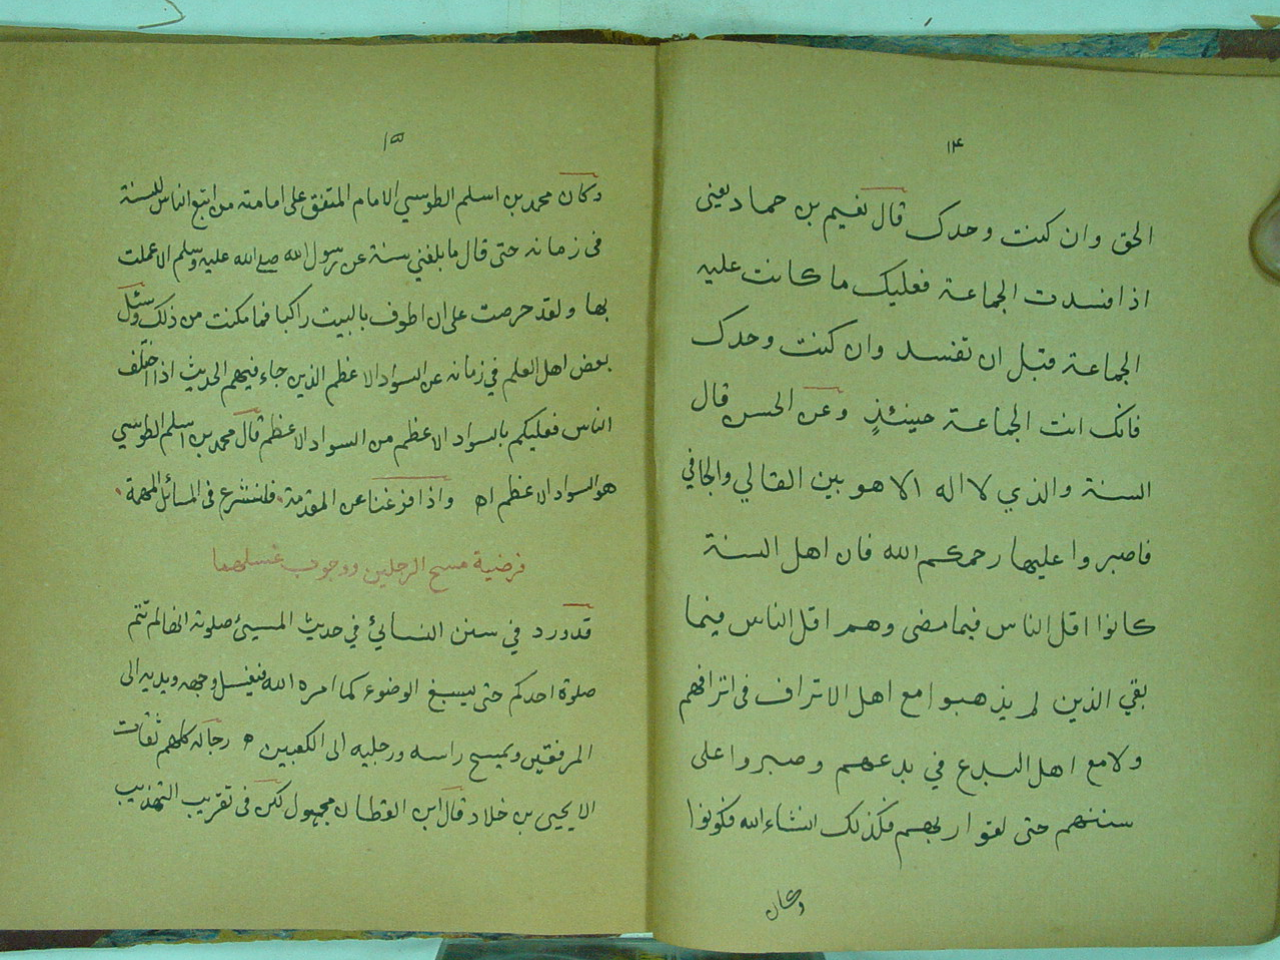 ١٤
الحق وان كنت وحدك قال نعيم بن حماد يعنى
اذا فسدت الجماعة فعليك ما كانت عليه
الجماعة قبل ان تفسد وان كنت وحدك
فانك انت الجماعة حينئذٍ وعن الحسن قال
السنة والذي لا اله الا هو بين الغالي والجافي
فاصبروا عليها رحمكم الله فان اهل السنة
كانوا اقل الناس فيما مضى وهم اقل الناس فيما
بقي الذين لم يذهبوا مع اهل الاتراف فى اترافهم
ولا مع اهل البدع في بدعهم وصبروا على
سننهم حتى لقوا ربهم فكذلك انشاء الله فكونوا
وكان
١٥
وكان محمد بن اسلم الطوسي الامام المتفق على امامته من اتبع الناس للسنة
فى زمانه حتى قال ما بلغني سنة عن رسول الله صلى الله عليه وسلم الا عملت
بها ولقد حرصت على ان اطوف بالبيت راكبا فما مكنت من ذلك وسئل
بعض اهل العلم في زمانه عن السواد الاعظم الذين جاء فيهم الحديث اذا اختلف
الناس فعليكم بالسواد الاعظم من السواد الاعظم قال محمد بن اسلم الطوسي
هو السواد الاعظم اه واذا فرغنا عن المقدمة فلنشرع فى المسائل المهمة
فرضية مسح الرجلين ووجوب غسلهما
قد ورد في سنن النسائي في حديث المسيئ صلوته انها لم تتم
صلوة احدكم حتى يسبغ الوضوء كما امره الله فيغسل وجهه ويديه الى
المرفقين ويمسح راسه ورجليه الى الكعبين ه رجاله كلهم ثقات
الا يحيى بن خلاد قال ابن القطان مجهول لكن فى تقريب التهذيب